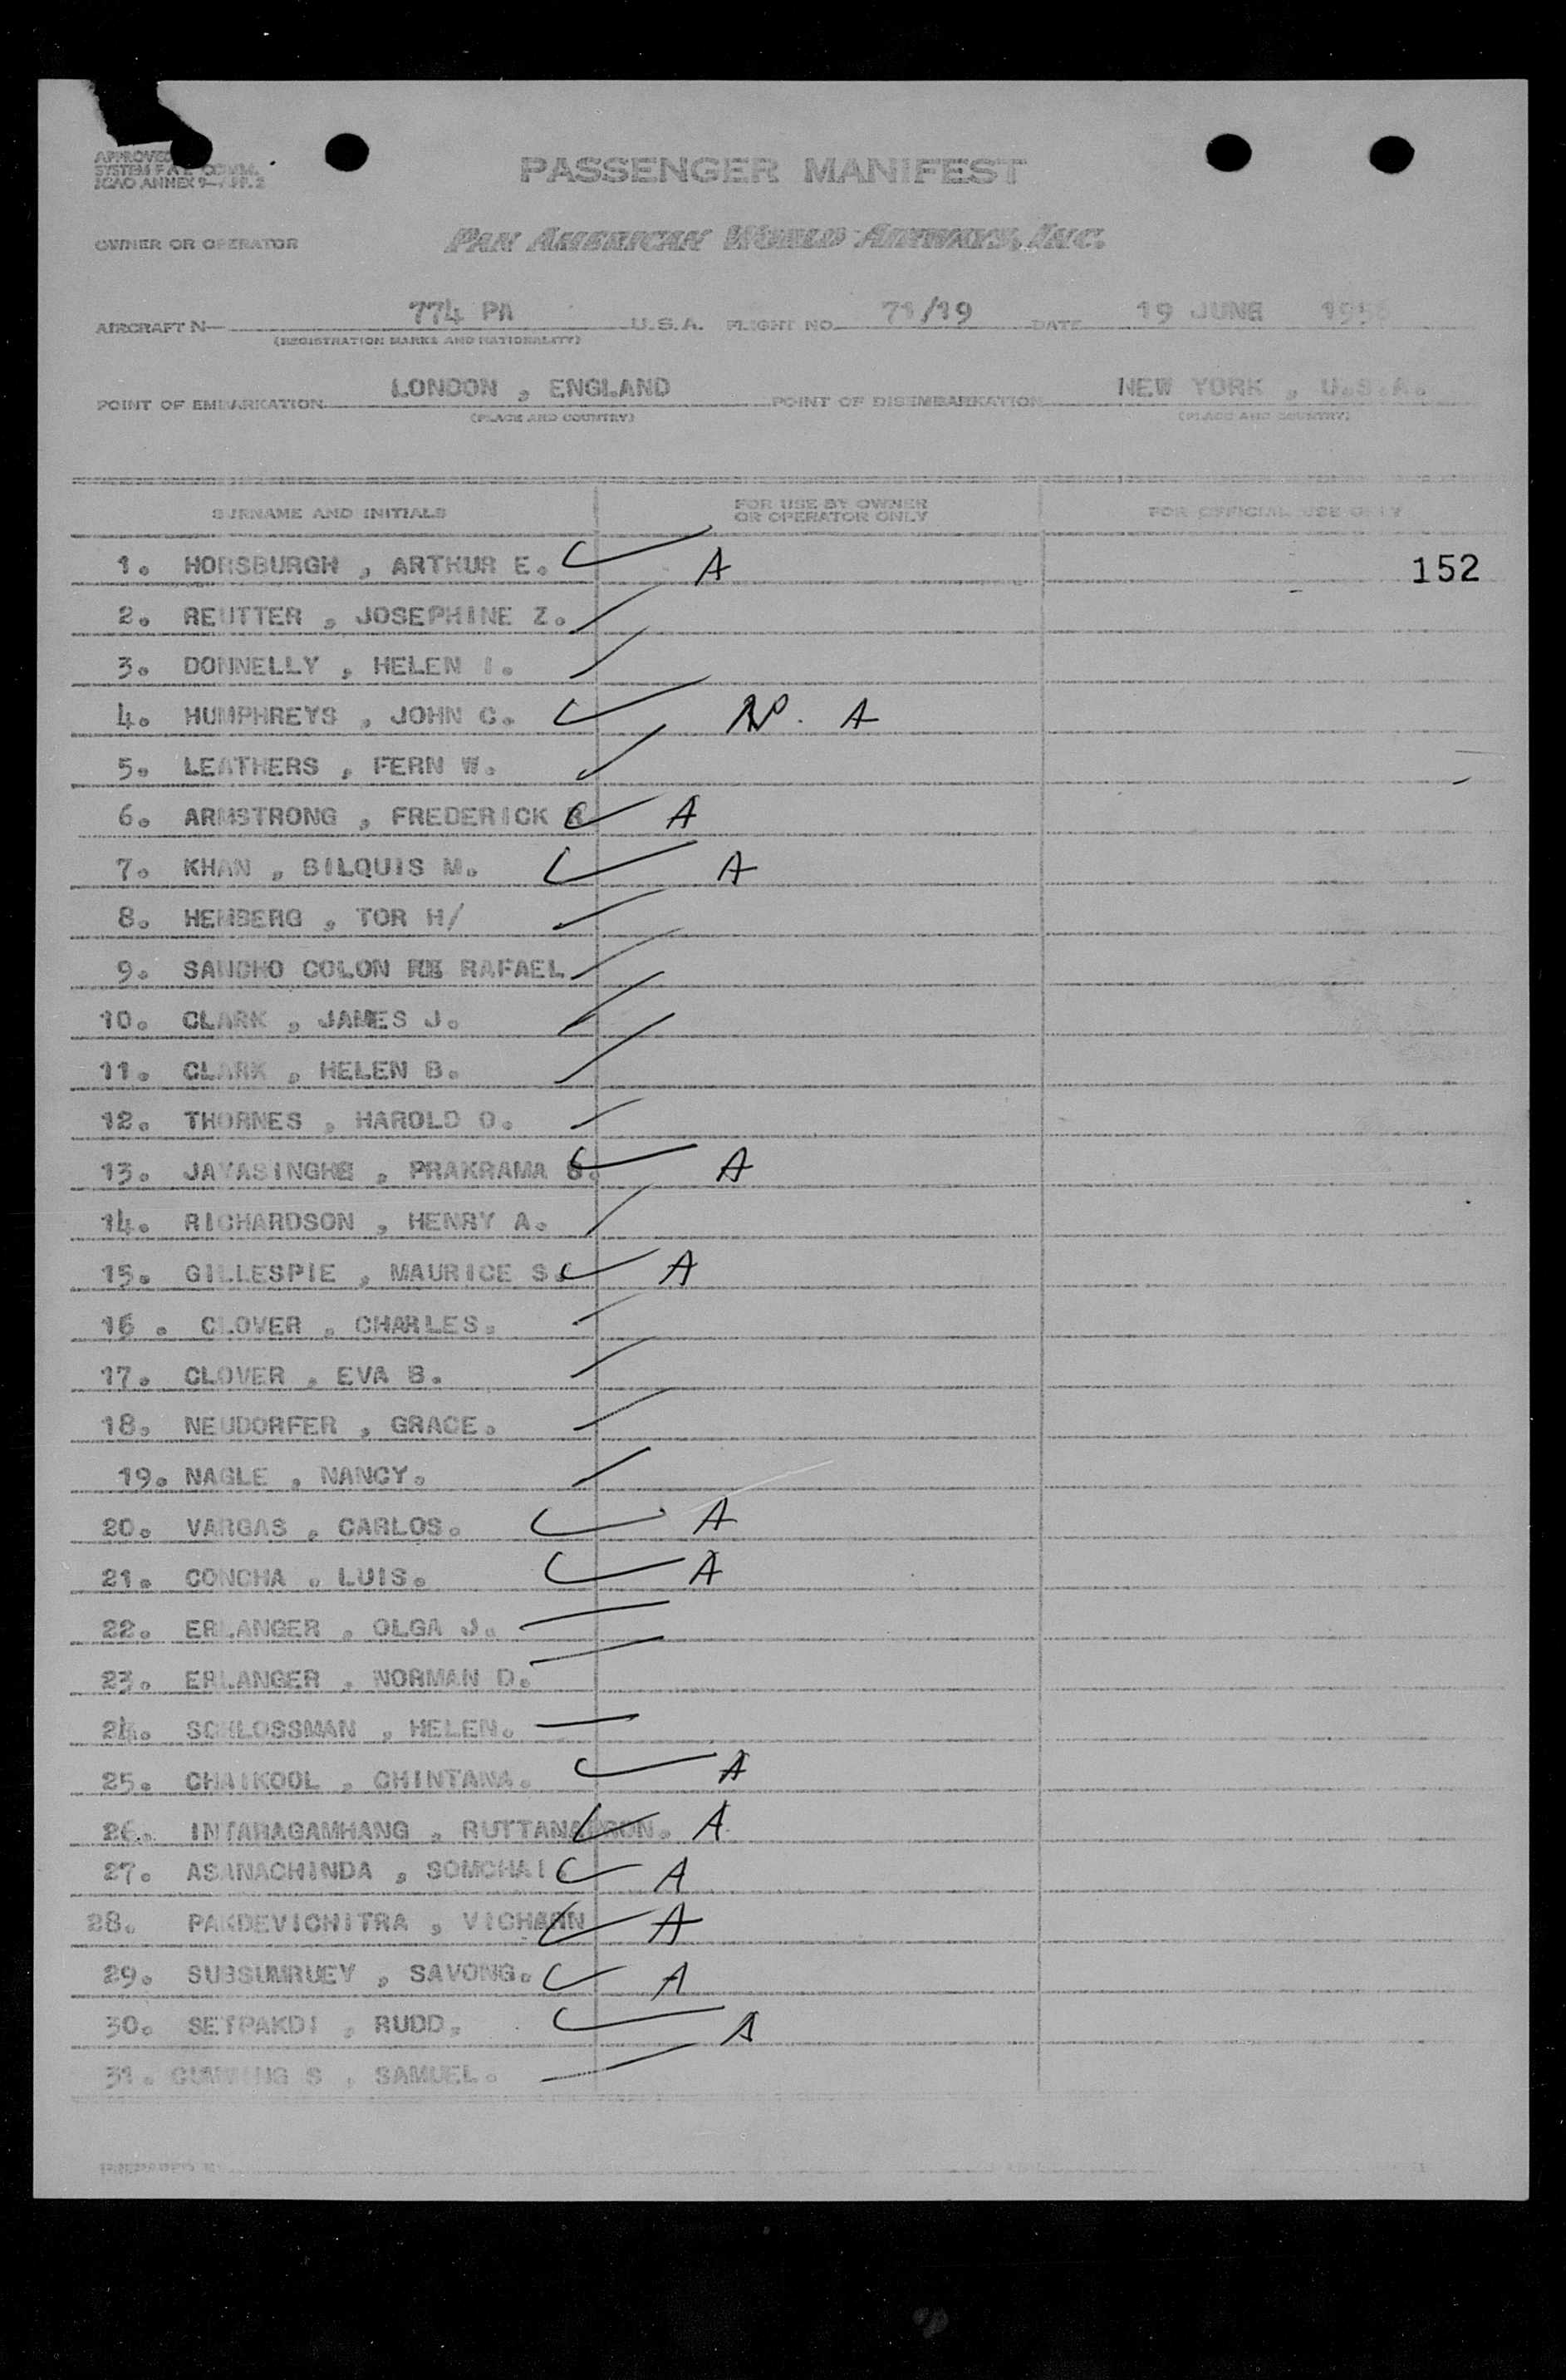 APPROVED
SYSTEM F A L COMM.
ICAO ANNEX 9—APP. 2
PASSENGER MANIFEST
OWNER OR OPERATOR
PAN AMERICAN WORLD AIRWAYS, INC.
AIRCRAFT N— 774 PA U.S.A. FLIGHT NO. 71/19 DATE 19 JUNE
(REGISTRATION MARKS AND NATIONALITY)
POINT OF EMBARKATION LONDON , ENGLAND POINT OF DISEMBARKATION NEW YORK , U.S.A.
(PLACE AND COUNTRY) (PLACE AND COUNTRY)
SURNAME AND INITIALS FOR USE BY OWNER OR OPERATOR ONLY FOR OFFICIAL USE ONLY
1. HORSBURGH , ARTHUR E. A 152
2. REUTTER , JOSEPHINE Z.
3. DONNELLY , HELEN I.
4. HUMPHREYS , JOHN C. A
5. LEATHERS , FERN W.
6. ARMSTRONG , FREDERICK R A
7. KHAN , BILQUIS M. A
8. HEMBERG , TOR H/
9. SANCHO COLON RAFAEL
10. CLARK , JAMES J.
11. CLARK , HELEN B.
12. THORNES , HAROLD O.
13. JAYASINGHE , PRAKRAMA S. A
14. RICHARDSON , HENRY A.
15. GILLESPIE , MAURICE S. A
16 . CLOVER , CHARLES.
17. CLOVER , EVA B.
18. NEUDORFER , GRACE.
19. NAGLE , NANCY.
20. VARGAS , CARLOS. A
21. CONCHA , LUIS. A
22. ERLANGER , OLGA J.
23. ERLANGER , NORMAN D.
24. SCHLOSSMAN , HELEN.
25. CHAIKOOL , CHINTANA. A
26. INTARAGAMHANG , RUTTANAPRON. A
27. ASANACHINDA , SOMCHAI . A
28. PAKDEVICHITRA , VICHARN A
29. SUBSUMRUEY , SAVONG. A
30. SETPAKDI , RUDD. A
31. CUMMING S , SAMUEL.
PREPARED BY